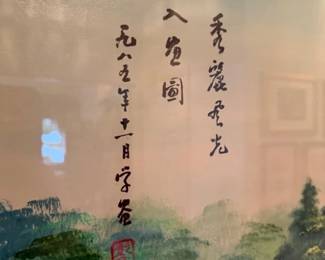 秀麗風光
入畫圖
一九八五年十一月宇谷